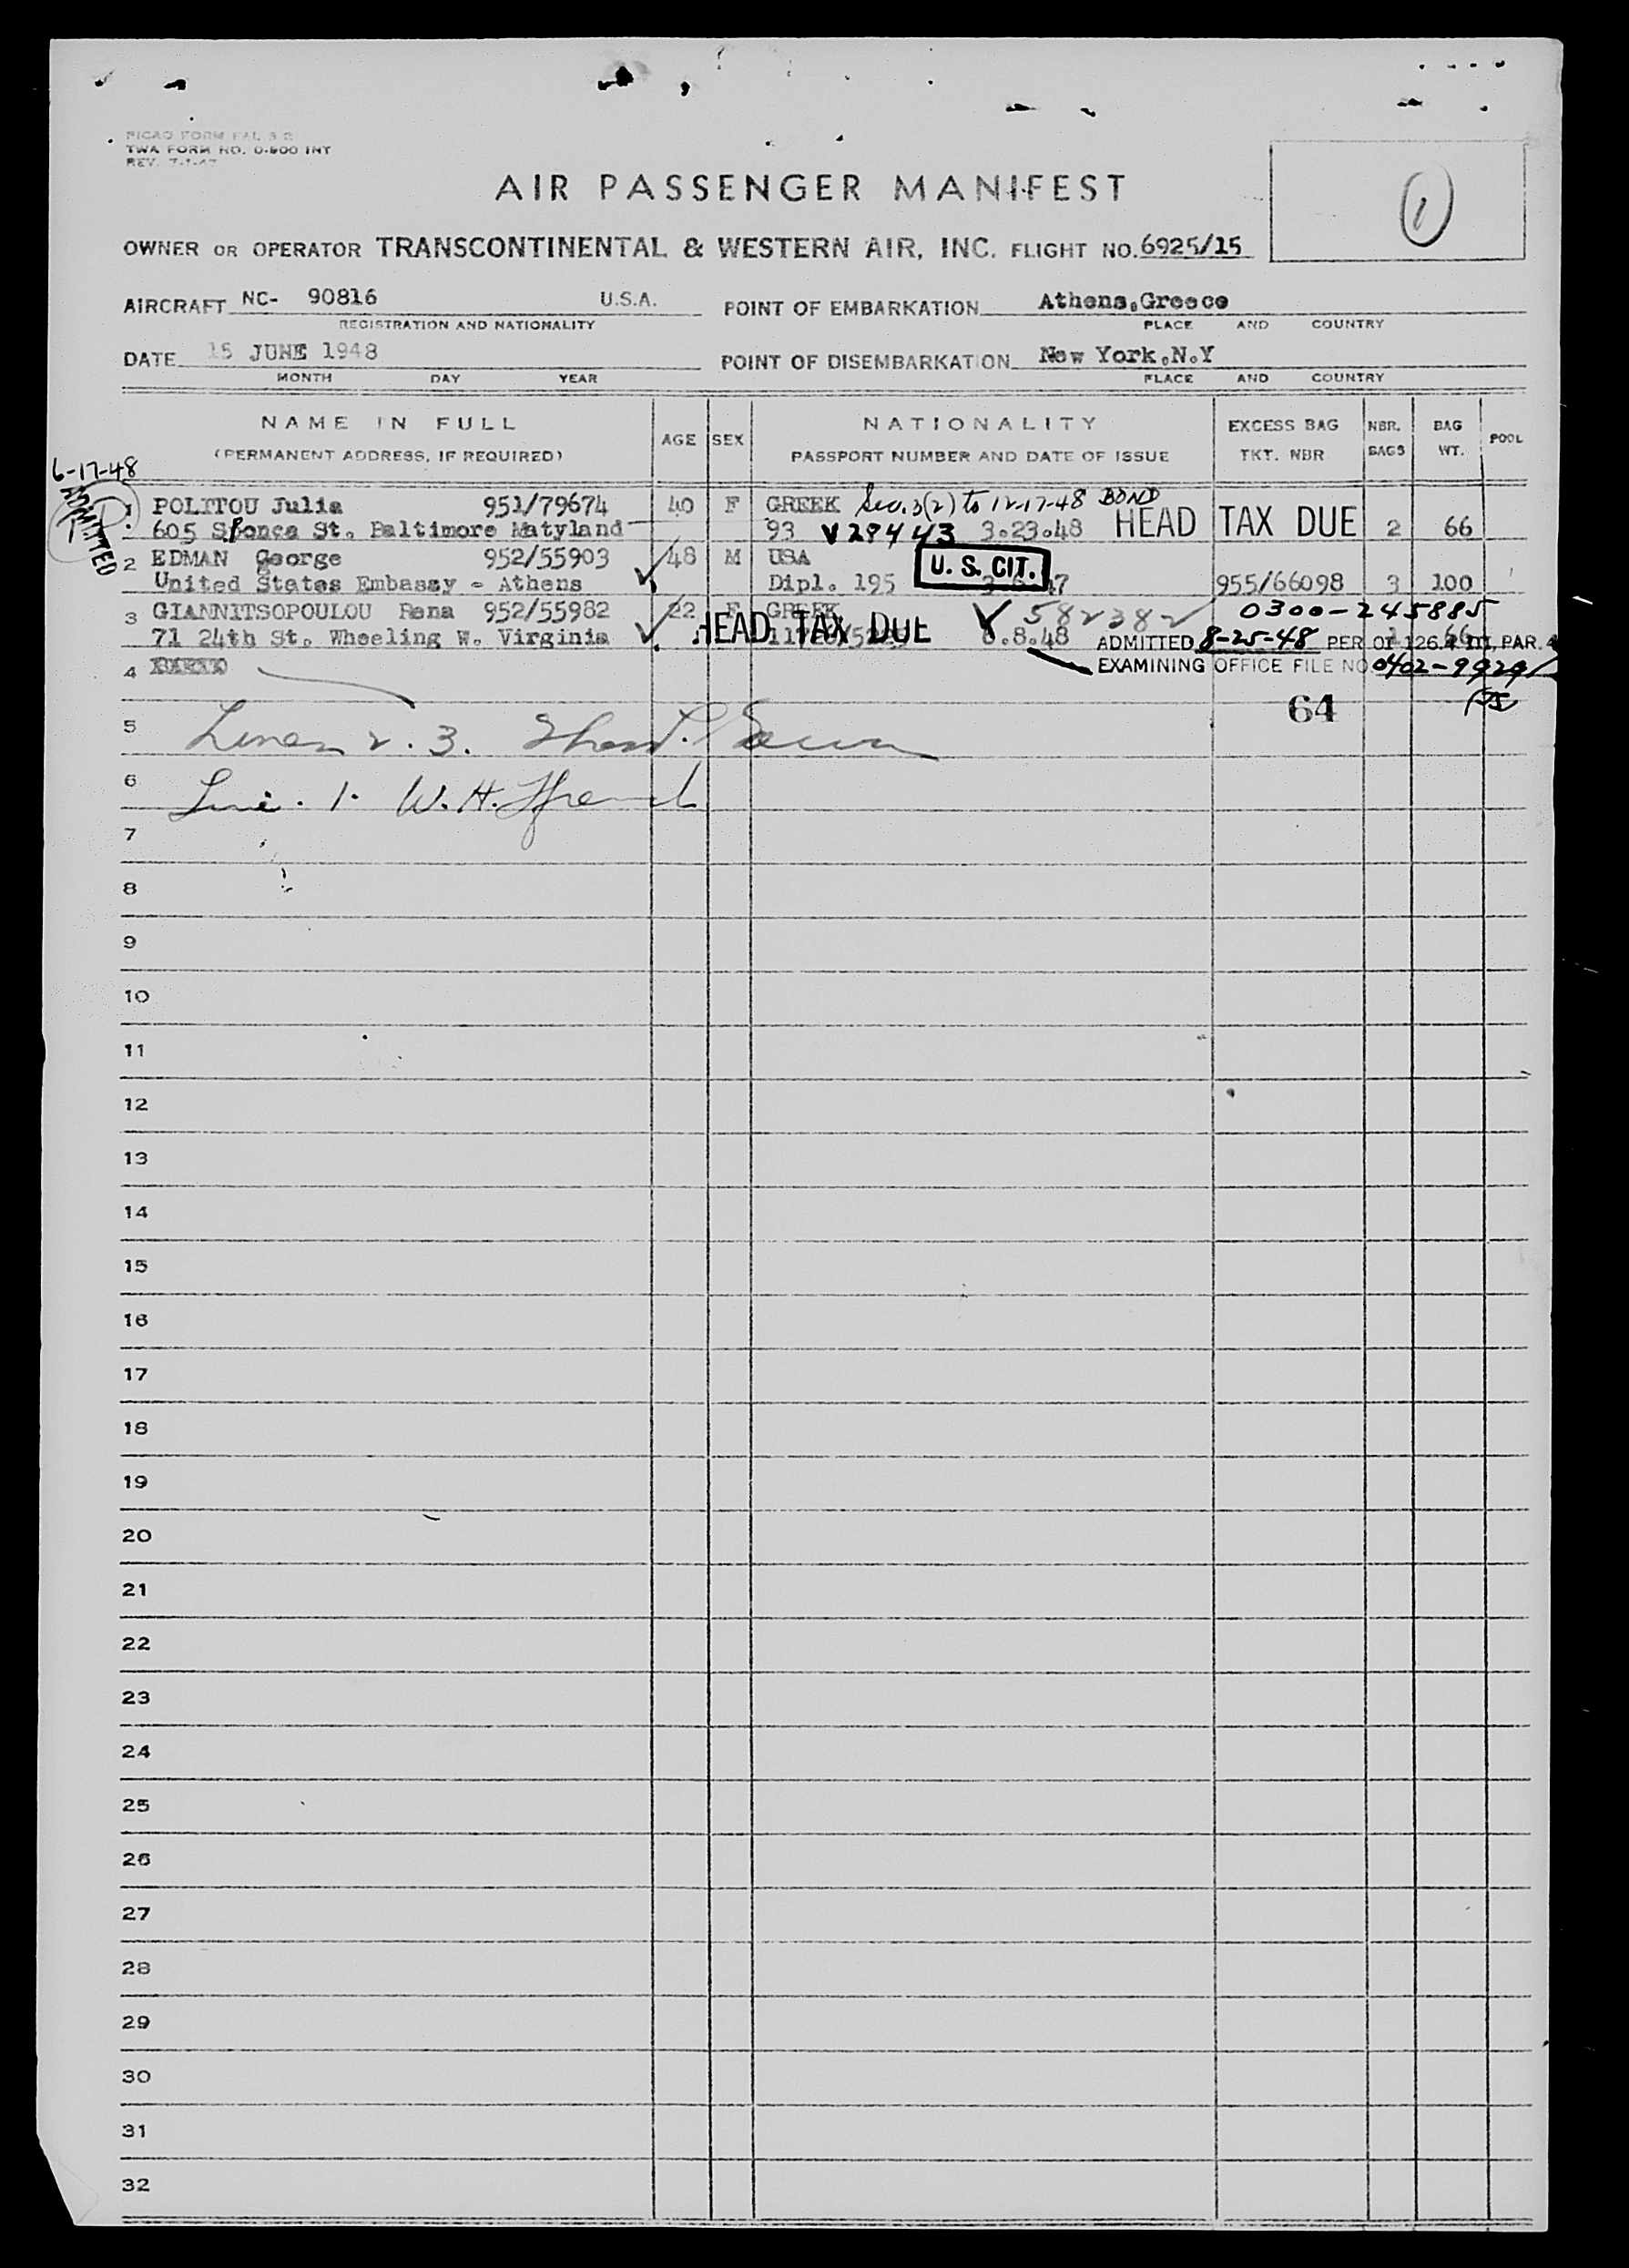 PICAO FORM FAL 3 B
TWA FORM NO. O-600 INT
REV. 7-1-47
AIR PASSENGER MANIFEST
1
OWNER OR OPERATOR TRANSCONTINENTAL & WESTERN AIR, INC. FLIGHT NO. 6925/15
AIRCRAFT NC- 90816 U.S.A. POINT OF EMBARKATION Athens,Greece
REGISTRATION AND NATIONALITY PLACE AND COUNTRY
DATE 15 JUNE 1948 POINT OF DISEMBARKATION New York.N.Y
MONTH DAY YEAR PLACE AND COUNTRY
NAME IN FULL AGE SEX NATIONALITY EXCESS BAG NBR. BAG POOL
(PERMANENT ADDRESS, IF REQUIRED) PASSPORT NUMBER AND DATE OF ISSUE TKT. NBR BAGS WT.
6-17-48
ADMITTED
1 POLITOU Julia 951/79674 40 F GREEK Sec. 3(2) to 12-17-48 BOND
605 Sponca St. Baltimore Matyland 93 V 28443 3.23.48 HEAD TAX DUE 2 66
2 EDMAN George 952/55903 48 M USA U. S. CIT.
United States Embassy - Athens Dipl. 195 47 955/66098 3 100
3 GIANNITSOPOULOU Rena 952/55982 22 F GREEK V 582382 0300-245885
71 24th St. Wheeling W. Virginia HEAD TAX DUE 8.48 ADMITTED 8-25-48 PER OI 126.4 III, PAR. 4
EXAMINING OFFICE FILE NO 0402-99291
4
64
5 Lines 2. 3.
6 Line. 1. W.H.
7
8
9
10
11
12
13
14
15
16
17
18
19
20
21
22
23
24
25
26
27
28
29
30
31
32